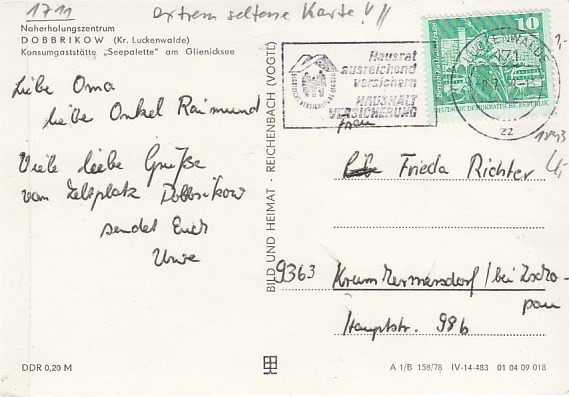 1711
extrem seltene Karte!!
Naherholungszentrum
DOBBRIKOW (Kr. Luckenwalde)
Konsumgaststätte "Seepalette" am Glienicksee
Liebe Oma
liebe Onkel Raimund
Viele liebe Grüße
vom Zeltplatz Dobbrikow
sendet Euch
Uwe
DDR 0,20 M
BILD UND HEIMAT · REICHENBACH (VOGTL)
Hausrat
ausreichend
versichern
HAUSHALT
VERSICHERUNG
10
DEUTSCHE DEMOKRATISCHE REPUBLIK
LUCKENWALDE
171
zz
1843
Frau
Frieda Richter
9363 Krummermersdorf/bei Zscho-
pau
Hauptstr. 98b
A 1/B 158/78 IV-14-483 01 04 09 018